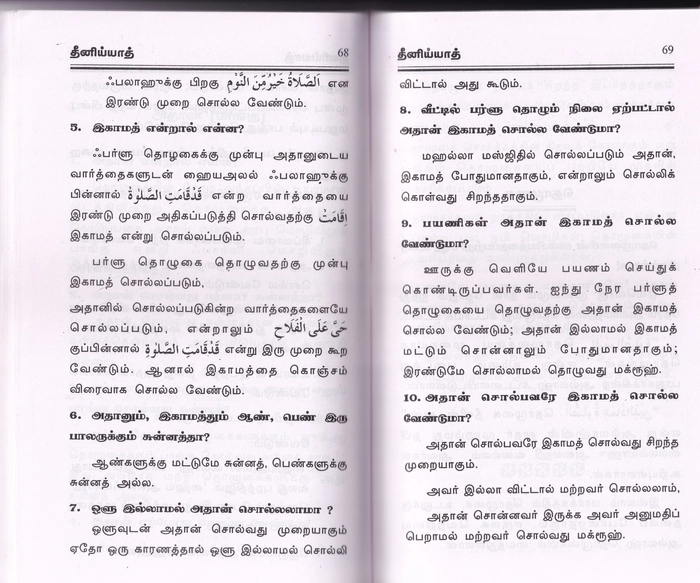 தீனிய்யாத் 68
ஃபலாஹுக்கு பிறகு اَلصَّلَاةُ خَيْرٌ مِّنَ النَّوْمِ என
இரண்டு முறை சொல்ல வேண்டும்.
5. இகாமத் என்றால் என்ன?
ஃபர்ளு தொழகைக்கு முன்பு அதானுடைய
வார்த்தைகளுடன் ஹயஅலல் ஃபலாஹுக்கு
பின்னால் قَدْقَامَتِ الصَّلوٰةُ என்ற வார்த்தையை
இரண்டு முறை அதிகப்படுத்தி சொல்வதற்கு إِقَامَتْ
இகாமத் என்று சொல்லப்படும்.
பர்ளு தொழுகை தொழுவதற்கு முன்பு
இகாமத் சொல்லப்படும்.
அதானில் சொல்லப்படுகின்ற வார்த்தைகளையே
சொல்லப்படும், என்றாலும் حَىَّ عَلَى الْفَلَاحِ
குப்பின்னால் قَدْقَامَتِ الصَّلوٰةِ என்று இரு முறை கூற
வேண்டும். ஆனால் இகாமத்தை கொஞ்சம்
விரைவாக சொல்ல வேண்டும்.
6. அதானும், இகாமத்தும் ஆண், பெண் இரு
பாலருக்கும் சுன்னத்தா?
ஆண்களுக்கு மட்டுமே சுன்னத், பெண்களுக்கு
சுன்னத் அல்ல.
7. ஒளு இல்லாமல் அதான் சொல்லலாமா ?
ஒளுவுடன் அதான் சொல்வது முறையாகும்
ஏதோ ஒரு காரணத்தால் ஒளு இல்லாமல் சொல்லி
தீனிய்யாத் 69
விட்டால் அது கூடும்.
8. வீட்டில் பர்ளு தொழும் நிலை ஏற்பட்டால்
அதான் இகாமத் சொல்ல வேண்டுமா?
மஹல்லா மஸ்ஜிதில் சொல்லப்படும் அதான்,
இகாமத் போதுமானதாகும், என்றாலும் சொல்லிக்
கொள்வது சிறந்ததாகும்.
9. பயணிகள் அதான் இகாமத் சொல்ல
வேண்டுமா?
ஊருக்கு வெளியே பயணம் செய்துக்
கொண்டிருப்பவர்கள். ஐந்து நேர பர்ளுத்
தொழுகையை தொழுவதற்கு அதான் இகாமத்
சொல்ல வேண்டும்; அதான் இல்லாமல் இகாமத்
மட்டும் சொன்னாலும் போதுமானதாகும்;
இரண்டுமே சொல்லாமல் தொழுவது மக்ரூஹ்.
10. அதான் சொல்பவரே இகாமத் சொல்ல
வேண்டுமா?
அதான் சொல்பவரே இகாமத் சொல்வது சிறந்த
முறையாகும்.
அவர் இல்லா விட்டால் மற்றவர் சொல்லலாம்,
அதான் சொன்னவர் இருக்க அவர் அனுமதிப்
பெறாமல் மற்றவர் சொல்வது மக்ரூஹ்.